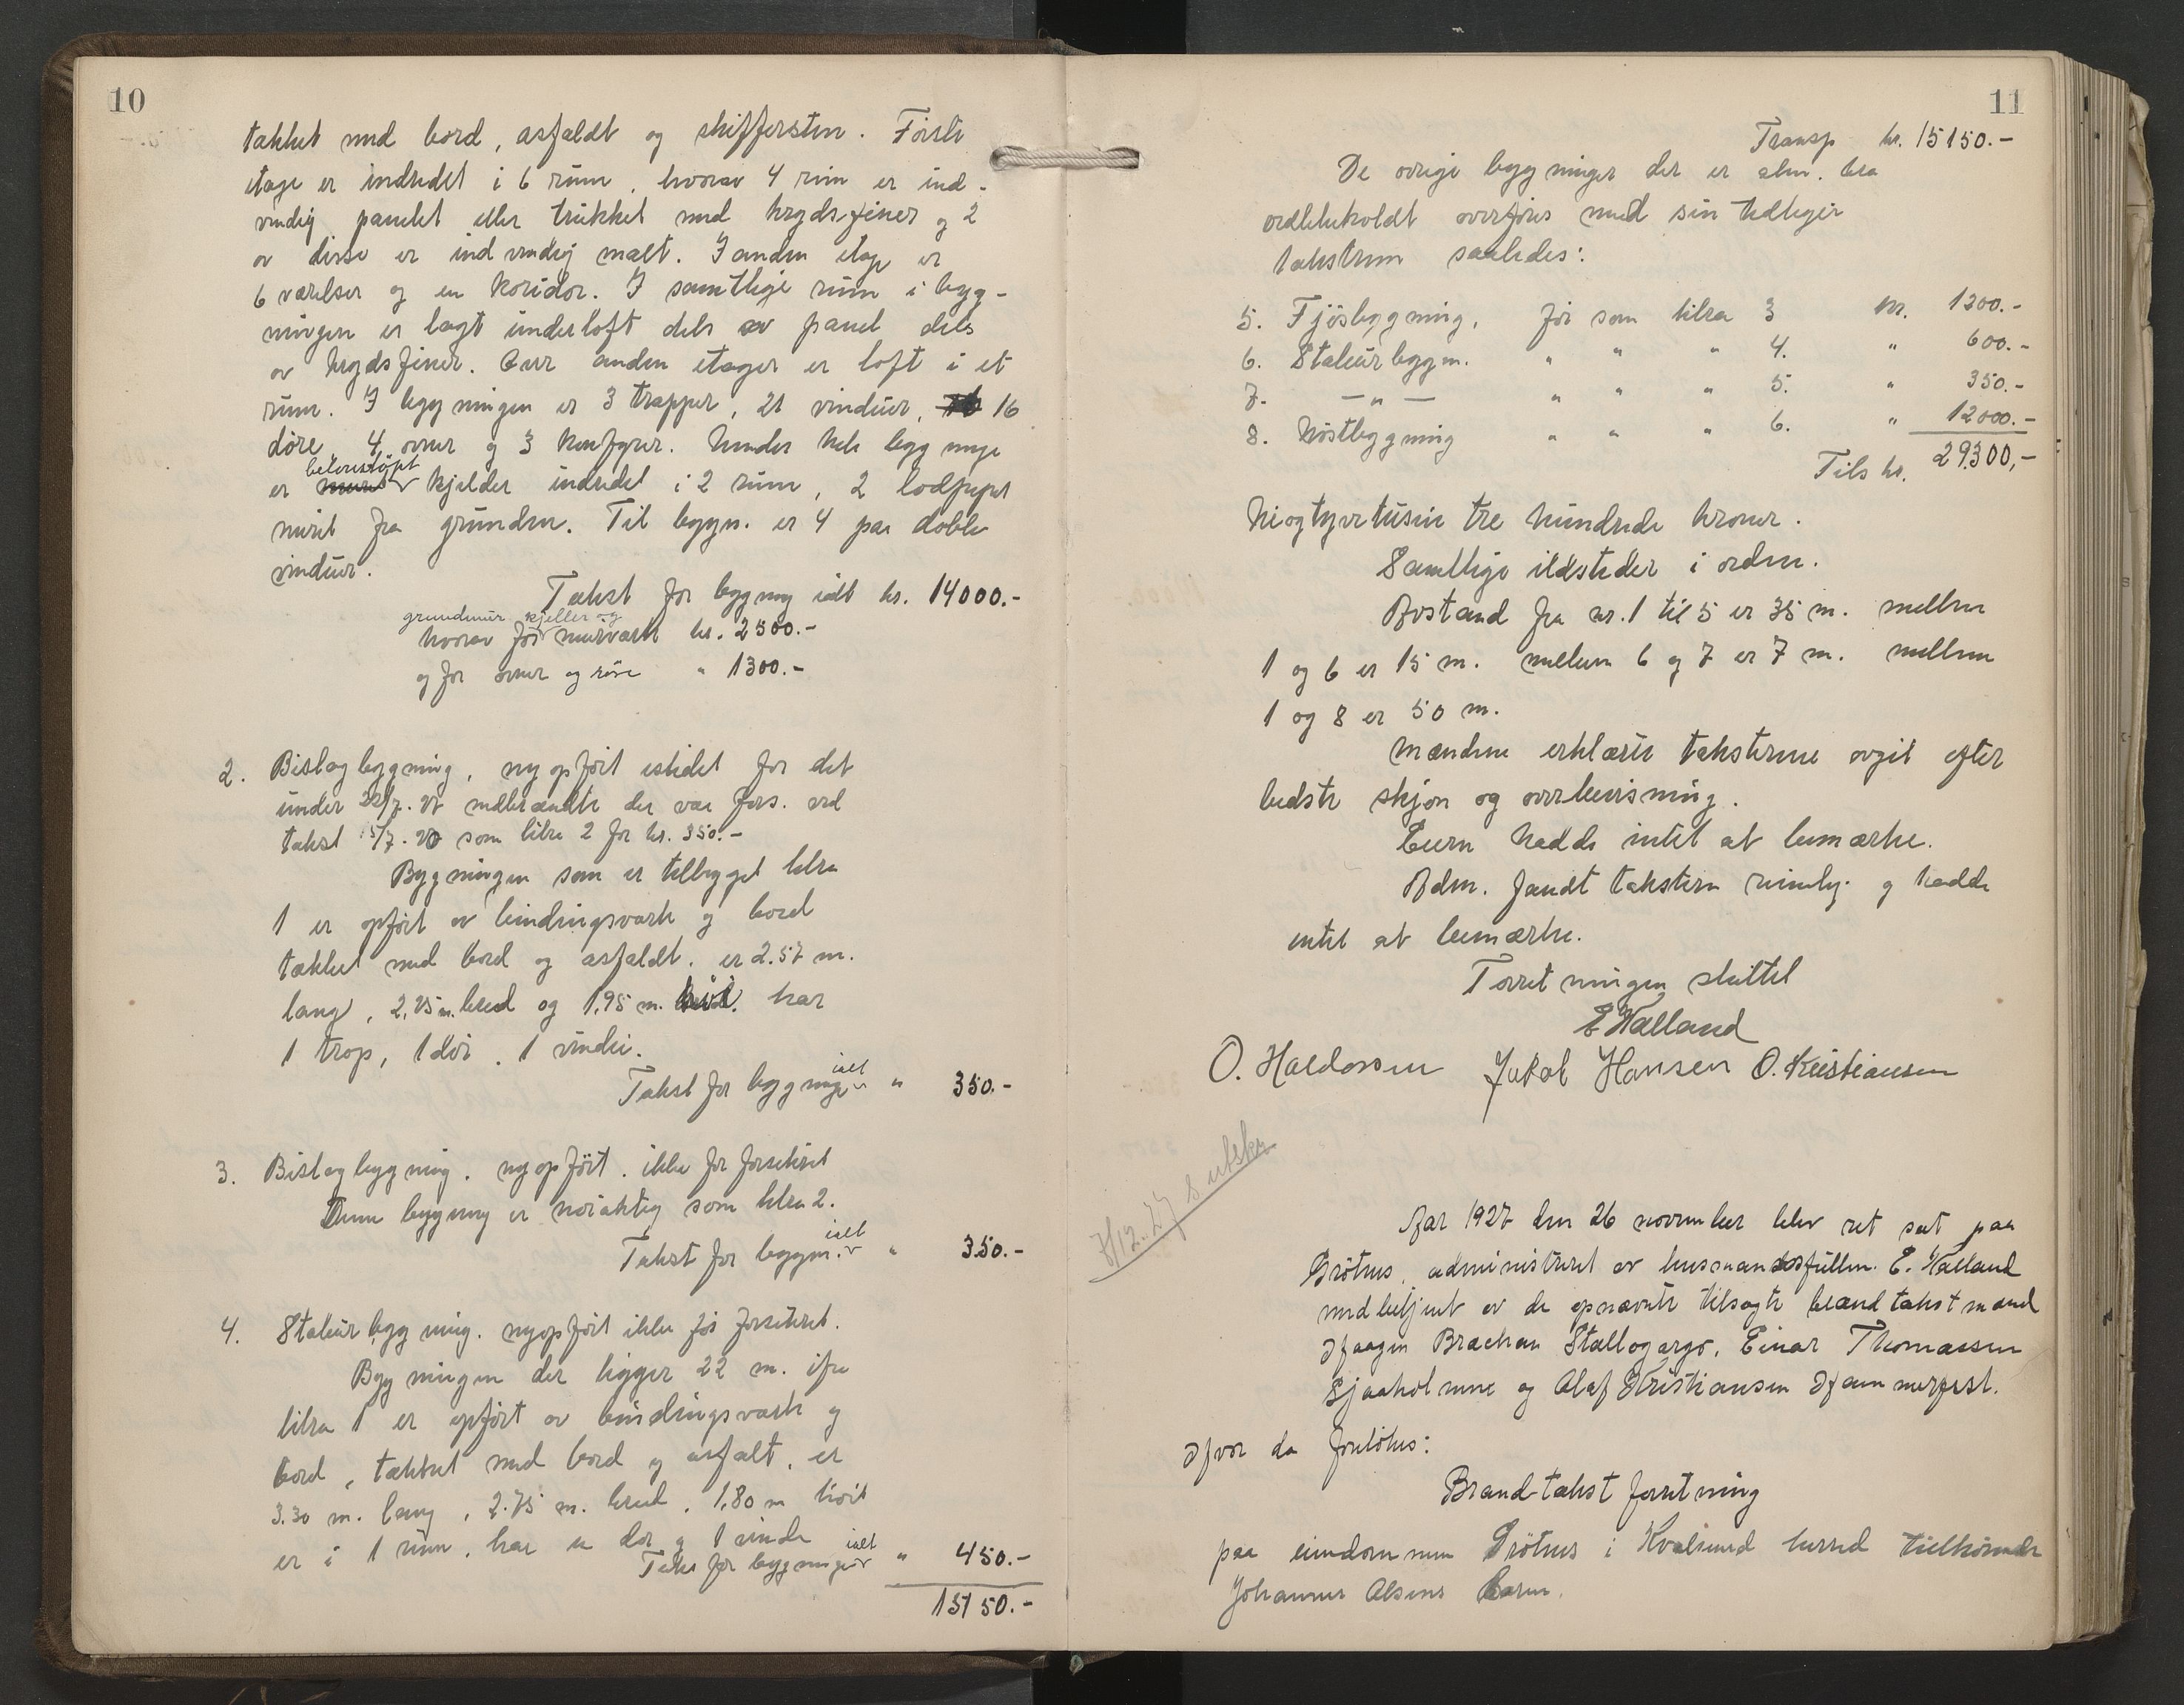 10
tækket med bord, asfaldt og skiffersten. Første
etage er indredet i 6 rum, hvorav 4 rum er ind-
vendig panelet eller trukket med krydsfiner og 2
av disse er indvendig malt. I anden etage er
6 værelser og en koridor. I samtlige rum i byg-
ningen er lagt underloft dels av panel dels
av krydsfiner. Over anden etager er loft i et
rum. I bygningen er 3 trapper, 21 vinduer, 16
döre, 4 ovner og 3 komfyrer. Under hele bygninge
betonstöpt
er kjelder indredet i 2 rum, 2 lodpiper
muret fra grunden. Til bygn. er 4 par doble
vinduer.
Takst for bygning ialt kr. 14000.-
grundmur kjeller og
hvorav for murværk kr. 2500.-
og for ovner og röre " 1300.-
2. Bislagbygning, nyopfört istedet for det
under 22/7. 27 nedbrændte der var fors. ved
takst 15/7. 20 som litra 2 for kr. 350.-
Bygningen som er tilbygget litra
1 er opfört av bindingsværk og bord
tækket med bord og asfaldt, er 2.57 m.
lang, 2,25 m. bred og 1,95 m. höi, har
1 trap, 1 dör, 1 vindu.
ialt
Takst for bygninge " 350.-
3. Bislagbygning, nyopfört, ikke för forsikret
Denne bygning er nöiaktig som litra 2.
ialt
Takst for bygn. " 350.-
4. Staburbygning, nyopfört ikke för forsikret.
Bygningen der ligger 22 m. ifra
litra 1 er opfört av bindingsværk og
bord, tækket med bord og asfalt, er
3.30 m. lang, 2.75 m. bred, 1,80 m höit
er i 1 rum, har en dör og 1 vindu
ialt
Takst for bygningen " 450.-
15150.-
11
Transp kr. 15150.-
De övrige bygninger der er alm. bra
vedlikeholdt overföres med sin tidligere
takstsum saaledes:
5. Fjösbygning, för som litra 3 kr. 1200.-
6. Staburbygn. " " " 4. " 600.-
7. — " — " " " 5. " 350.-
8. Nöstbygning " " " 6. " 12000.-
Tils kr. 29300,-
Niogtyvetusin tre hundrede kroner.
Samtlige ildsteder i orden.
Avstand fra nr. 1 til 5 er 35 m. mellem
1 og 6 er 15 m. mellem 6 og 7 er 7 m. mellem
1 og 8 er 50 m.
Mændene erklærte taksterne avgit efter
bedste skjön og overbevisning.
Eieren hadde intet at bemærke.
Adm. fandt taksten rimelig og hadde
intet at bemærke.
Forretningen sluttet
E Walland
O. Haldorsen Jakob Hansen O. Kristiansen
7/12.27 s utskr
Aar 1927 den 26 november blev ret sat paa
Grötnes, administreret av lensmandsfullm. E. Walland
med betjent av de opnævnte tilsagte brand takstmænd
Haagen Stallogargo, Einar Thomassen
Sjaaholmene og Olaf Kristiansen Hammerfest.
Hvor da foretokes:
Brandtakst forretning
paa eiendommen Grötnes i Kvalsund herred tilhörende
Johannes Olsens barn.